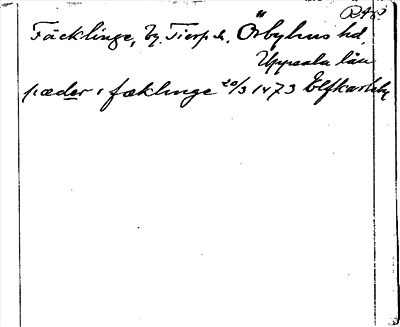 Fäcklinge, by, Tierp s., Örbyhus hd,
Uppsala län
pæder i fæklinge 20/3 1473 Elfkarleby